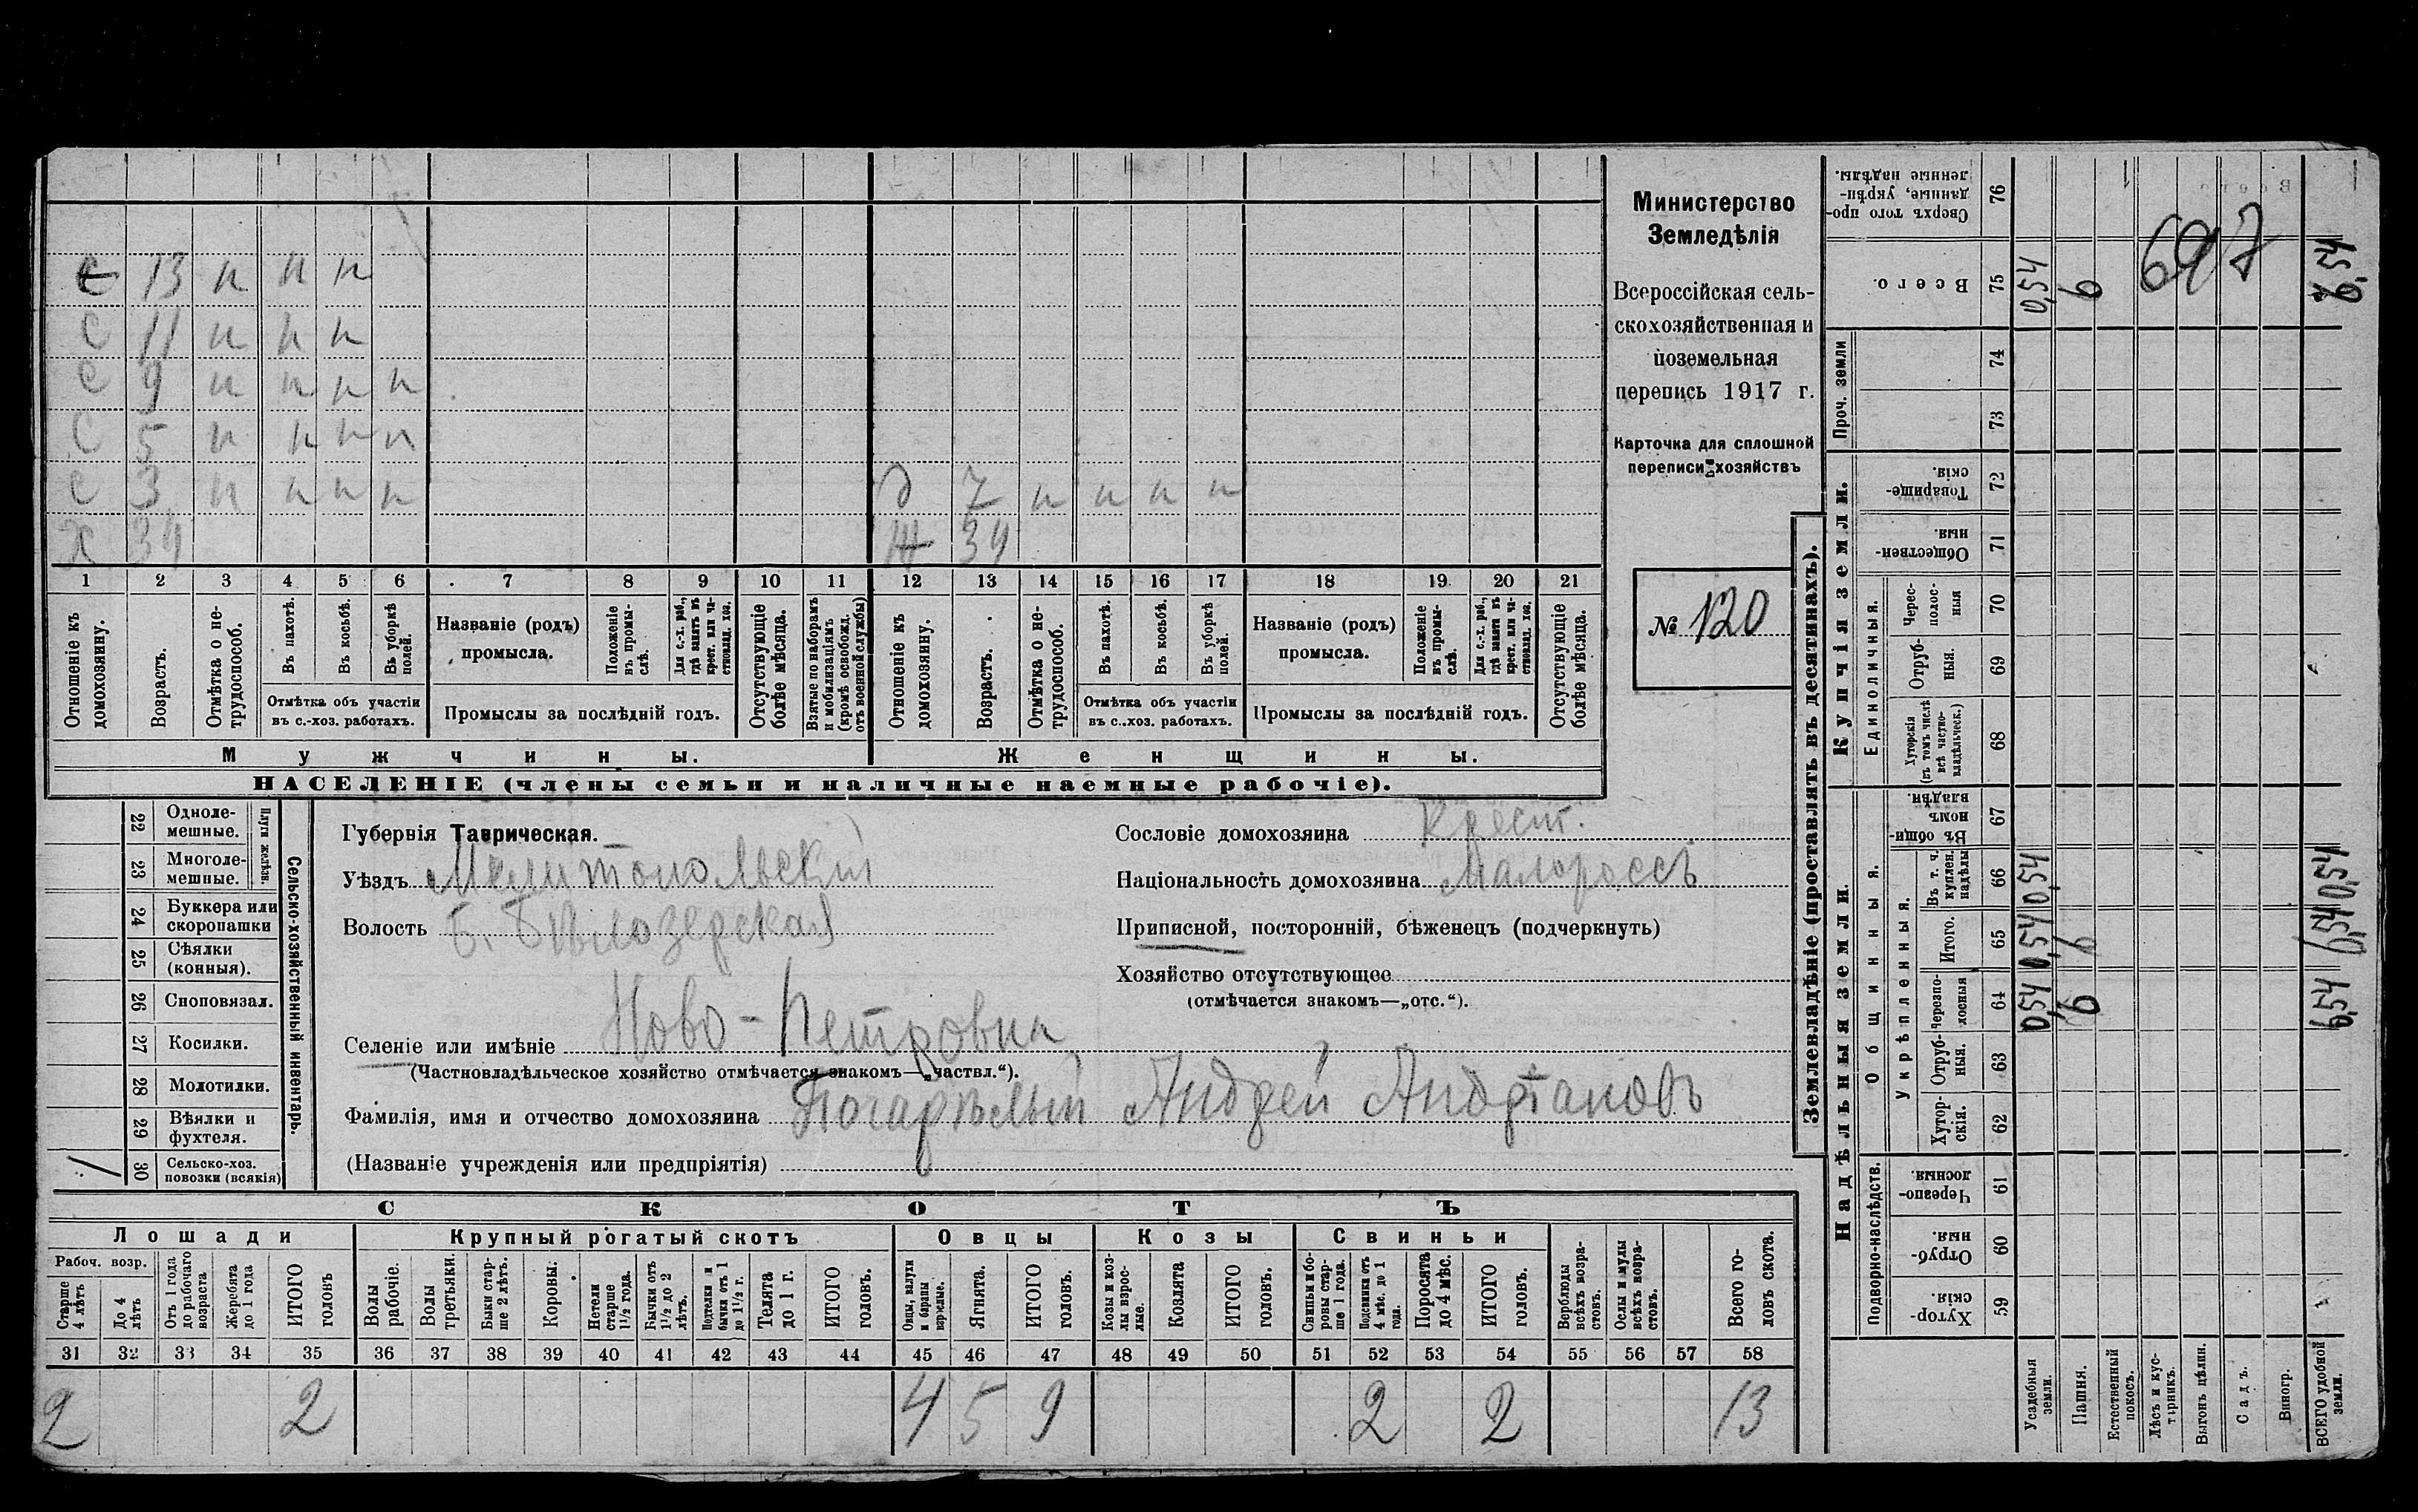 с 13 н н н
с 11 н н н
с 9 н н н н
с 5 н н н н
с 3 н н н н д 7 н н н н
х 39 ж 39
1 2 3 4 5 6 7 8 9 10 11 12 13 14 15 16 17 18 19 20 21
Отношеніе къ домохозяину.
Возрастъ.
Отмѣтка о не-
трудоспособ.
Въ пахотѣ.
Въ косьбѣ.
Въ уборкѣ полей.
Отмѣтка объ участіи
въ с.-хоз. работахъ.
Названіе (родъ)
промысла.
Положеніе
въ промы-
слѣ.
Для с.-х. раб.,
гдѣ занятъ въ
крест. или ча-
стновлад. хоз.
Промыслы за послѣдній годъ.
Отсутствующіе
болѣе мѣсяца.
Взятые по наборамъ
и мобилизаціямъ
(кромѣ освобожд.
отъ военной службы)
Отношеніе къ
домохозяину.
Возрастъ.
Отмѣтка о не-
трудоспособ.
Въ пахотѣ.
Въ косьбѣ.
Въ уборкѣ
полей.
Отмѣтка объ участіи
въ с.-хоз. работахъ.
Названіе (родъ)
промысла.
Положеніе
въ промы-
слѣ.
Для с.-х. раб.,
гдѣ занята въ
крест. или ча-
стновлад. хоз.
Промыслы за послѣдній годъ.
Отсутствующіе
болѣе мѣсяца.
Мужчины. Женщины.
НАСЕЛЕНІЕ (члены семьи и наличные наемные рабочіе).
Министерство
Земледѣлія
Всероссійская сель-
скохозяйственная и
поземельная
перепись 1917 г.
Карточка для сплошной
переписи хозяйствъ
№ 120
22 Одноле-
мешные.
23 Многоле-
мешные.
Плуги желѣзн.
24 Буккера или
скоропашки
25 Сѣялки
(конныя).
26 Сноповязал.
27 Косилки.
28 Молотилки.
29 Вѣялки и
фухтеля.
1 30 Сельско-хоз.
повозки (всякія)
Сельско-хозяйственный инвентарь.
Губернія Таврическая.
Уѣздъ Мелитопольскій
Волость Б. Бѣлозерская
Селеніе или имѣніе Ново-Петровка
(Частновладѣльческое хозяйство отмѣчается знакомъ—„частвл.“).
Фамилія, имя и отчество домохозяина Погарѣлый Андрей Андріановъ
(Названіе учрежденія или предпріятія)
Сословіе домохозяина Крест.
Національность домохозяина Малороссъ
Приписной, посторонній, бѣженецъ (подчеркнуть)
Хозяйство отсутствующее
(отмѣчается знакомъ—„отс.“).
СКОТЪ
Лошади Крупный рогатый скотъ Овцы Козы Свиньи
Рабоч. возр.
Старше
4 лѣтъ
До 4
лѣтъ
Отъ 1 года
до рабочаго
возраста
Жеребята
до 1 года
ИТОГО
головъ
Волы
рабочіе.
Волы
третьяки.
Быки стар-
ше 2 лѣтъ.
Коровы.
Нетели
старше
1½ года.
Бычки отъ
1½ до 2
лѣтъ.
Подтелки и
бычки отъ 1
до 1½ г.
Телята
до 1 г.
ИТОГО
головъ.
Овцы, валухи
и бараны
взрослые.
Ягнята.
ИТОГО
головъ.
Козы и коз-
лы взрос-
лые.
Козлята
ИТОГО
головъ.
Свиньи и бо-
ровы стар-
ше 1 года.
Подсвинки отъ
4 мѣс. до 1
года.
Поросята
до 4 мѣс.
ИТОГО
головъ.
Верблюды
всѣхъ возра-
стовъ.
Ослы и мулы
всѣхъ возра-
стовъ.
Всего го-
ловъ скота.
31 32 33 34 35 36 37 38 39 40 41 42 43 44 45 46 47 48 49 50 51 52 53 54 55 56 57 58
2 2 4 5 9 2 2 13
Землевладѣніе (проставлять въ десятинахъ).
Купчія земли.
Надѣльныя земли.
Сверхъ того про-
данные, укрѣп-
ленные надѣлы.
76
Всего.
75 0,54 6 6,54
697
Проч. земли
74
73
Товарище-
скія.
72
Обществен-
ныя
71
Единоличныя.
Черес-
полос-
ныя
70
Отруб-
ныя.
69
Хуторскія
(въ томъ числѣ
всѣ частно-
владѣльческ.)
68
Общинныя.
Въ общи-
номъ
владѣн.
67
Укрѣпленныя.
Въ т. ч.
куплен.
надѣлы
66 0,54 0,54
Итого.
65 0,54 6 6,54
Черезпо-
лосныя
64 0,54 6 6,54
Отруб-
ныя.
63
Хутор-
скія.
62
Подворно-наслѣдств.
Черезпо-
лосныя
61
Отруб-
ныя.
60
Хутор-
скія
59
Усадебныя
земли.
Пашня.
Естественный
покосъ.
Лѣсъ и кус-
тарникъ.
Выгонъ цѣлин.
Садъ.
Виногр.
ВСЕГО удобной
земли.